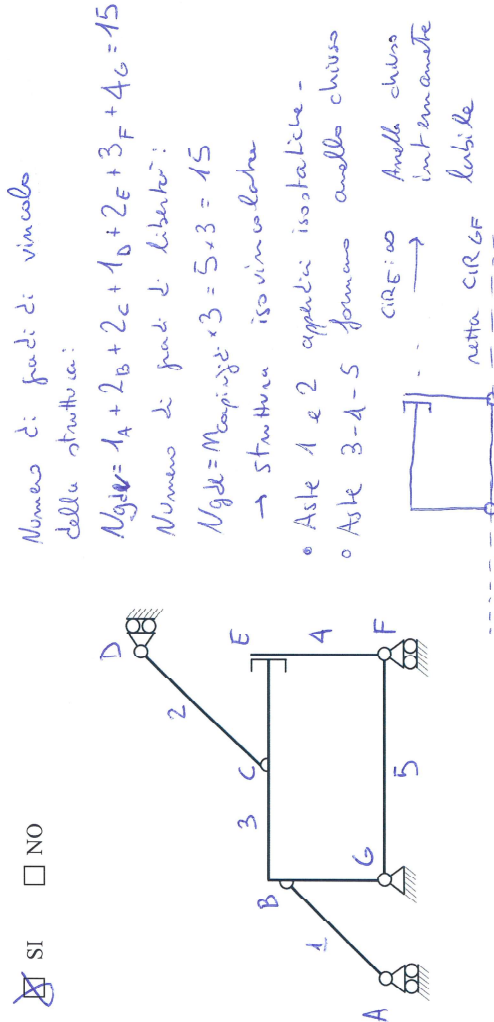 SI NO
Numero di gradi di vincolo
della struttura:
Ngdv = 1A + 2B + 2C + 1D + 2E + 3F + 4G = 15
Numero di gradi di libertà:
Ngdl = Mcorpi rigidi × 3 = 5 × 3 = 15
→ struttura isovincolata
• Aste 1 e 2 appendici isostatiche -
• Aste 3-4-5 formano anello chiuso
CIRE: ∞
Anello chiuso
internamente
labile
retta CIRGF
D
2
E
C
3
4
B
1
G
5
F
A